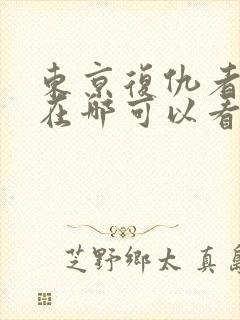 東京復仇者
在哪可以看
芝野鄉太 真島